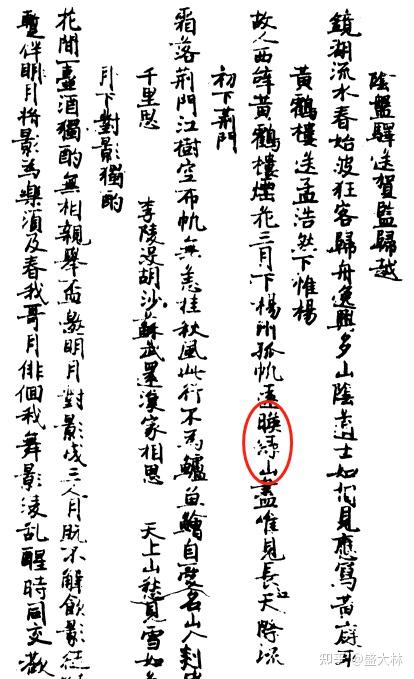 陰盤驛送賀監歸越
鏡湖流水春始波狂客歸舟逸興多山陰道士如相見應寫黃庭
黃鶴樓送孟浩然下惟楊
故人西辞黃鶴樓煙花三月下楊州孤帆遠暎綠山盡唯見長江天際流
初下荊門
霜落荊門江樹空布帆無恙挂秋風此行不為鱸魚鱠自愛名山入剡
千里思 李陵没胡沙蘇武還漢家相思 天上山愁見雪如
月下對影獨酌
花間一壷酒獨酌無相親舉盃邀明月對影成三人月既不解飲影徒
暫伴明月將影為樂須及春我哥月徘徊我舞影淩乱醒時同交歡
知乎 @盛大林